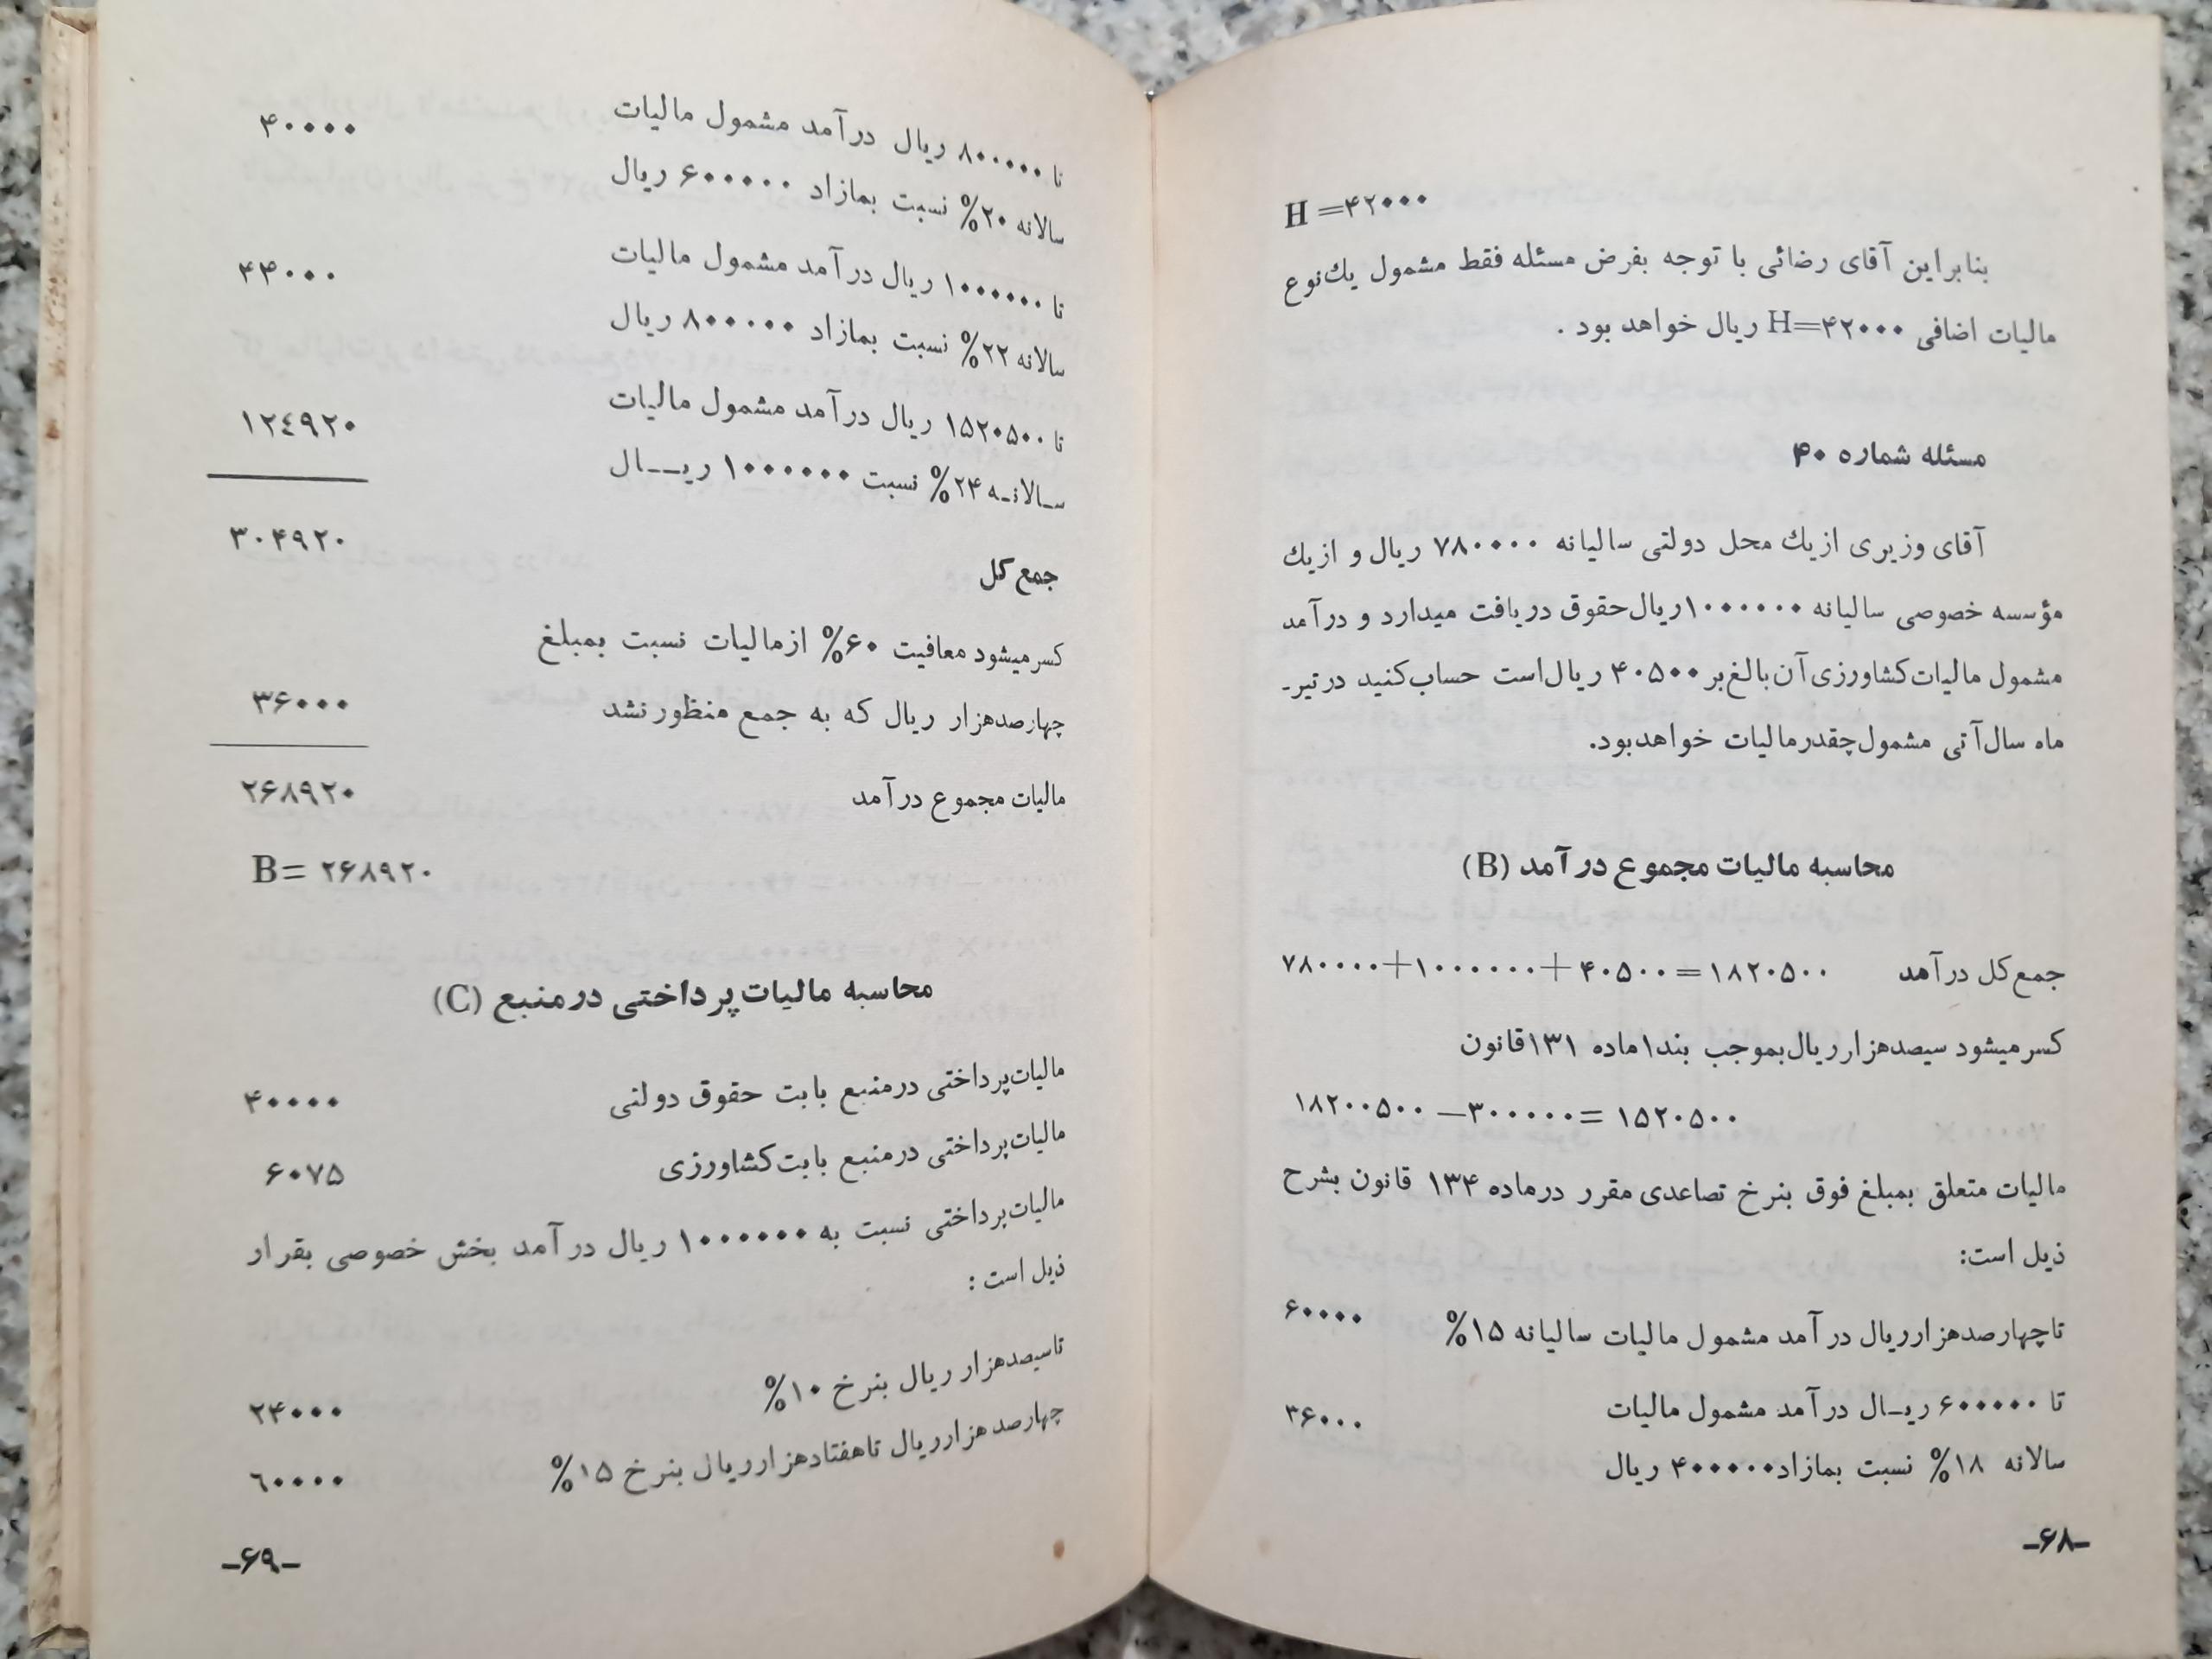 H =۴۲۰۰۰
بنابراین آقای رضائی با توجه بفرض مسئله فقط مشمول یك‌نوع
مالیات اضافی H=۴۲۰۰۰ ریال خواهد بود .
مسئله شماره ۴۰
آقای وزیری ازیك محل دولتی سالیانه ۷۸۰۰۰۰ ریال و ازیك
مؤسسه خصوصی سالیانه ۱۰۰۰۰۰۰ریال‌حقوق دریافت میدارد و درآمد
مشمول مالیات‌کشاورزی‌آن‌بالغ‌بر ۴۰۵۰۰ ریال‌است حساب‌کنید درتیر-
ماه سال‌آتی مشمول‌چقدرمالیات خواهدبود.
محاسبه مالیات مجموع درآمد (B)
جمع‌کل درآمد ۷۸۰۰۰۰+۱۰۰۰۰۰۰+۴۰۵۰۰=۱۸۲۰۵۰۰
کسرمیشود سیصدهزارریال‌بموجب بند۱ماده ۱۳۱قانون
۱۸۲۰۰۵۰۰ –۳۰۰۰۰۰= ۱۵۲۰۵۰۰
مالیات متعلق بمبلغ فوق بنرخ تصاعدی مقرر درماده ۱۳۴ قانون بشرح
ذیل است:
تاچهارصدهزارریال درآمد مشمول مالیات سالیانه ۱۵% ۶۰۰۰۰
تا ۶۰۰۰۰۰ ریـال درآمد مشمول مالیات ۳۶۰۰۰
سالانه ۱۸% نسبت بمازاد۴۰۰۰۰۰ ریال
-۶۸-
تا ۸۰۰۰۰۰ ریال درآمد مشمول مالیات ۴۰۰۰۰
سالانه ۲۰% نسبت بمازاد ۶۰۰۰۰۰ ریال
تا ۱۰۰۰۰۰۰ ریال درآمد مشمول مالیات ۴۴۰۰۰
سالانه ۲۲% نسبت بمازاد ۸۰۰۰۰۰ ریال
تا ۱۵۲۰۵۰۰ ریال درآمد مشمول مالیات ۱۲٤۹۲۰
سـالانـه ۲۴% نسبت ۱۰۰۰۰۰۰ ریــال
۳۰۴۹۲۰
جمع‌کل
کسرمیشود معافیت ۶۰% ازمالیات نسبت بمبلغ
چهارصدهزار ریال که به جمع منظورنشد ۳۶۰۰۰
مالیات مجموع درآمد ۲۶۸۹۲۰
B= ۲۶۸۹۲۰
محاسبه مالیات‌پرداختی درمنبع (C)
مالیات‌پرداختی درمنبع بابت حقوق دولتی ۴۰۰۰۰
مالیات‌پرداختی درمنبع بابت‌کشاورزی ۶۰۷۵
مالیات‌پرداختی نسبت به ۱۰۰۰۰۰۰ ریال درآمد بخش خصوصی بقرار
ذیل است :
تاسیصدهزار ریال بنرخ ۱۰% ۲۴۰۰۰
چهارصدهزارریال تاهفتادهزارریال بنرخ ۱۵% ٦۰۰۰۰
-۶۹-